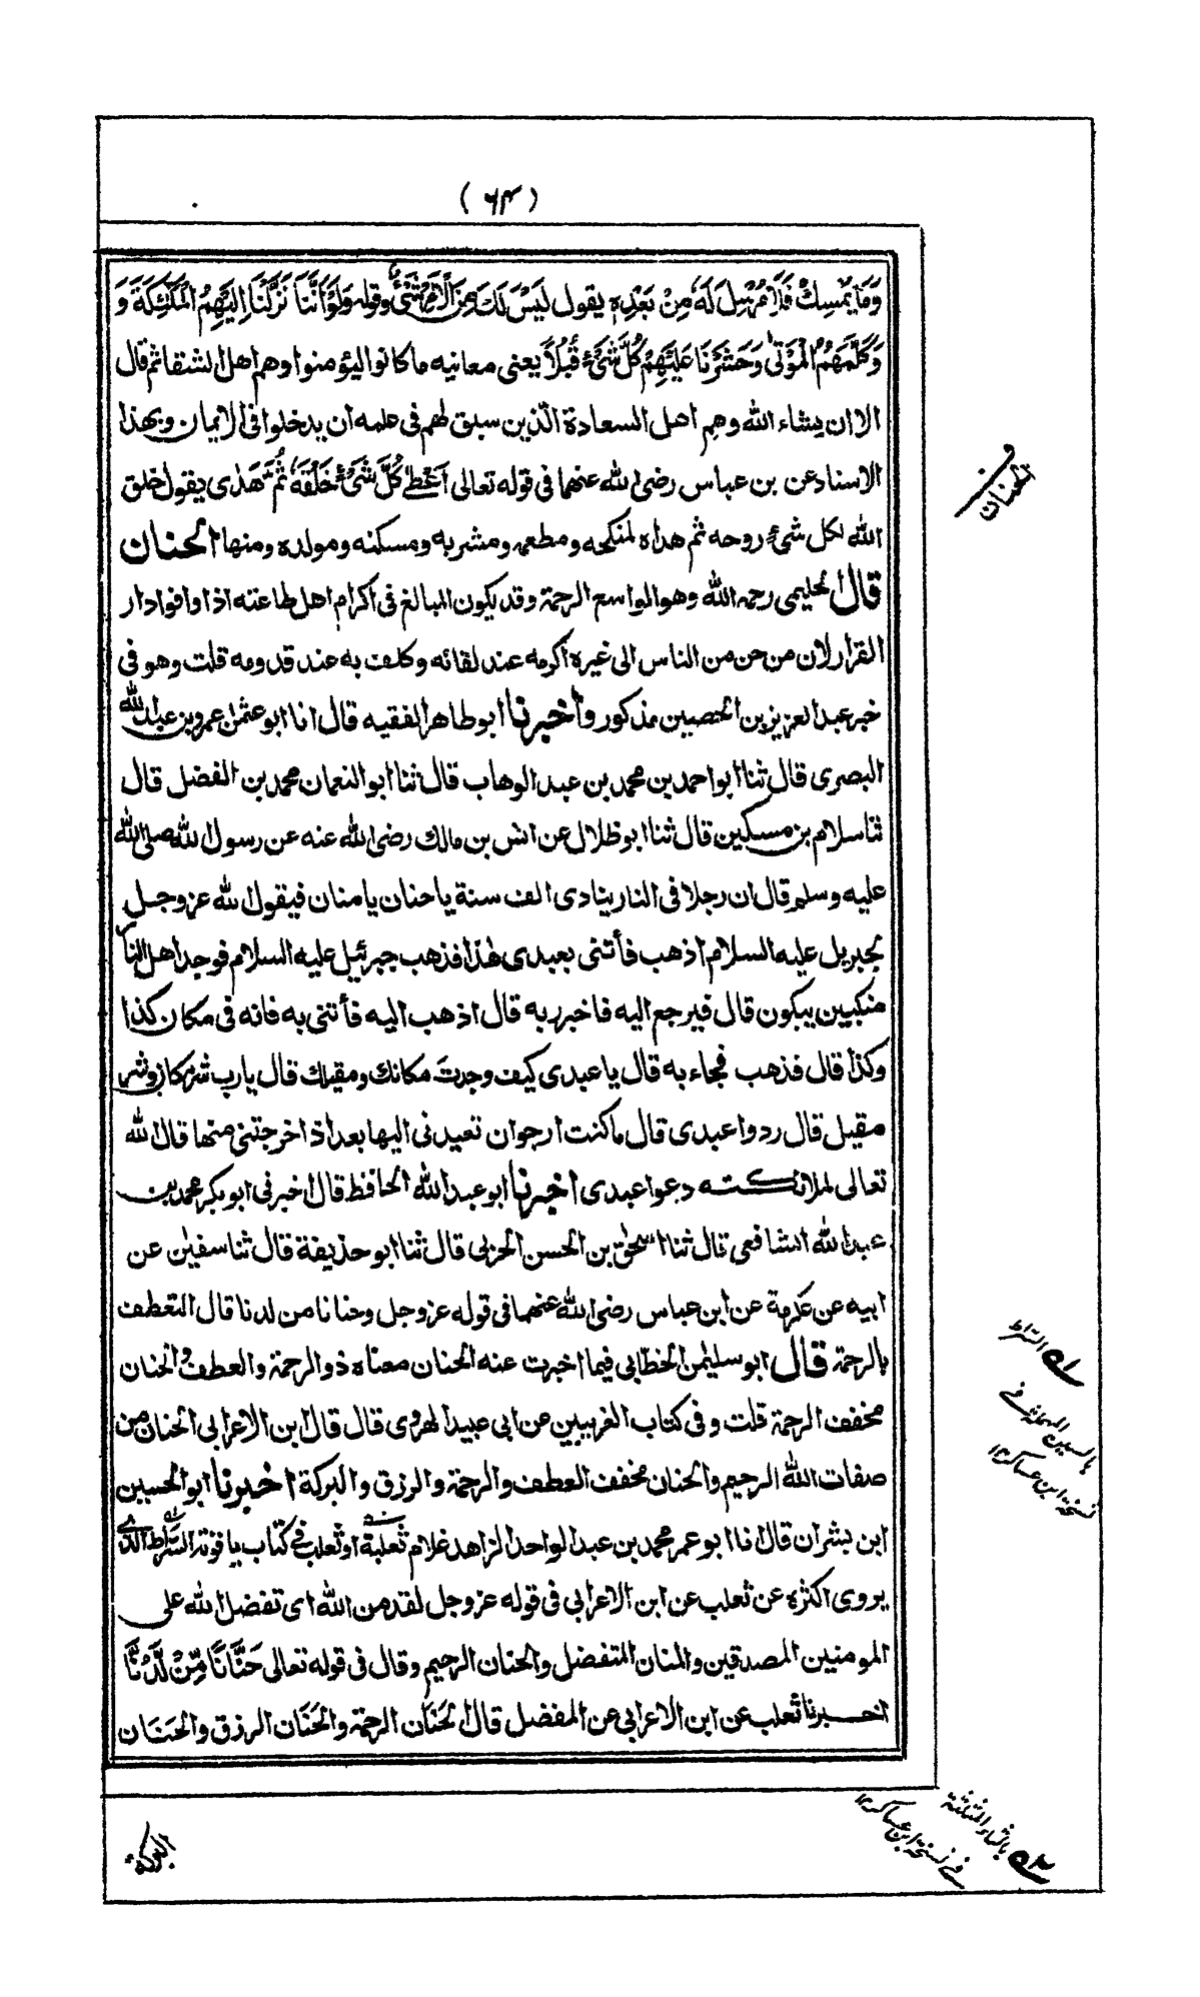 (٦٤)
وَمَا يُمْسِكْ فَلَا مُرْسِلَ لَهٗ مِنْ بَعْدِهٖ يقول لَيْسَ لَكَ مِنَ الْاَمْرِ شَيْءٌ وقوله وَلَوْ اَنَّنَا نَزَّلْنَا اِلَيْهِمُ الْمَلٰٓئِكَةَ وَ
وَكَلَّمَهُمُ الْمَوْتٰى وَحَشَرْنَا عَلَيْهِمْ كُلَّ شَيْءٍ قُبُلًا يعنى معانيه ما كانوا ليؤمنوا وهم اهل الشقا ثم قال
الا ان يشاء الله وهم اهل السعادة الذين سبق لهم فى علمه ان يدخلوا فى الايمان وبهذا
الاسناد عن بن عباس رضى الله عنهما فى قوله تعالى اَعْطٰى كُلَّ شَيْءٍ خَلْقَهٗ ثُمَّ هَدٰى يقول خلق
الله لكل شئ روحه ثم هداه لمنكحه ومطعمه ومشربه ومسكنه ومولده ومنها الحنان
الحنان
قال الحليمى رحمه الله وهو الواسع الرحمة وقد يكون المبالغ فى اكرام اهل طاعته اذا وافوا دار
القرار لان من حن من الناس الى غيره اكرمه عند لقائه وكلف به عند قدومه قلت وهو فى
خبر عبد العزيز بن الحصين مذكور واخبرنا ابو طاهر الفقيه قال انا ابو عثمن عمرو بن عبد الله
البصرى قال ثنا ابو احمد بن محمد بن عبد الوهاب قال ثنا ابو النعمان محمد بن الفضل قال
ثنا سلام بن مسكين قال ثنا ابو ظلال عن انس بن مالك رضى الله عنه عن رسول الله صلى الله
عليه وسلم قال ان رجلا فى النار ينادى الف سنة يا حنان يا منان فيقول الله عز وجل
لجبريل عليه السلام اذهب فأتنى بعبدى هذا فذهب جبرئيل عليه السلام فوجد اهل النار
منكبين يبكون قال فيرجع اليه فاخبر ربه قال اذهب اليه فأتنى به فانه فى مكان كذا
وكذا قال فذهب فجاء به قال يا عبدى كيف وجدت مكانك ومقيلك قال يا رب شر مكان وشر
مقيل قال ردوا عبدى قال ما كنت ارجو ان تعيدنى اليها بعد اذ اخرجتنى منها قال الله
تعالى لملائكته دعوا عبدى اخبرنا ابو عبد الله الحافظ قال اخبرنى ابو بكر محمد بن
عبد الله الشافعى قال ثنا اسحٰق بن الحسن الحربى قال ثنا ابو حذيفة قال ثنا سفيٰن عن
ابيه عن عكرمة عن ابن عباس رضى الله عنهما فى قوله عز وجل وحنانا من لدنا قال التعطف
بالرحمة قال ابو سليمٰن الخطابى فيما اخبرت عنه الحنان معناه ذو الرحمة والعطف والحنان
مخفف الرحمة قلت وفى كتاب الغريبين عن ابى عبيد الهروى قال قال ابن الاعرابى الحنان من
صفات الله الرحيم والحنان مخفف العطف والرحمة والرزق والبركة اخبرنا ابو الحسين
ابن بشران قال انا ابو عمر محمد بن عبد الواحد الزاهد غلام ثعلبة او ثعلب فى كتاب ياقوتة السراط الذى
يروى اكثره عن ثعلب عن ابن الاعرابى فى قوله عز وجل لقد من الله اى تفضل الله على
المومنين المصدقين والمنان المتفضل والحنان الرحيم وقال فى قوله تعالى حَنَانًا مِّنْ لَّدُنَّا
اخبرنا ثعلب عن ابن الاعرابى عن المفضل قال الحَنَان الرحمة والحَنَان الرزق والحَنَان
له السراط
بالسين المهملة فى
نسخة ابن عساكر ١٢
بالثاء المثلثة
فى نسخة ابن عساكر ١٢
البركة